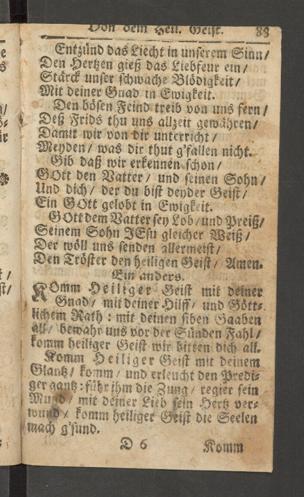 Von dem Heil. Geist. 83
Entzünd das Liecht in unserem Sinn/
Den Hertzen gieß das Liebfeur ein/
Stärck unser schwache Blödigkeit/
Mit deiner Gnad in Ewigkeit.
Den bösen Feind treib von uns fern/
Deß Frids thu uns allzeit gewähren/
Damit wir von dir unterricht/
Meyden/ was dir thut g'fallen nicht.
Gib daß wir erkennen schon/
GOtt den Vatter/ und seinen Sohn/
Und dich/ der du bist beyder Geist/
Ein GOtt gelobt in Ewigkeit.
GOtt dem Vatter sey Lob/ und Preiß/
Seinem Sohn JEsu gleicher Weiß/
Der wöll uns senden allermeist/
Den Tröster den heiligen Geist/ Amen.
Ein anders.
KOmm Heiliger Geist mit deiner
Gnad/ mit deiner Hilff/ und Gött-
lichem Rath: mit deinen siben Gaaben
all/ bewahr uns vor der Sünden Fahl/
komm heiliger Geist wir bitten dich all.
Komm Heiliger Geist mit deinem
Glantz/ komm/ und erleucht den Predi-
ger gantz: führ ihm die Zung/ regier sein
Mund/ mit deiner Lieb sein Hertz ver-
wund/ komm heiliger Geist die Seelen
mach g'sund.
D 6 Komm